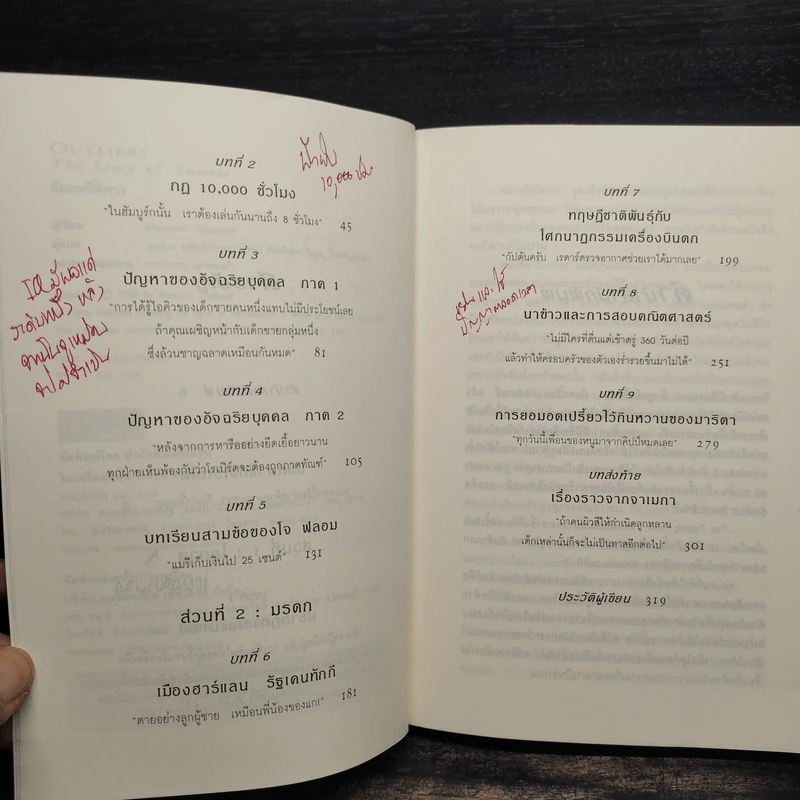 OUTLIERS
The Story of Success
บทที่ 2
กฎ 10,000 ชั่วโมง
"ในฮัมบูร์กนั้น เราต้องเล่นกันนานถึง 8 ชั่วโมง" 45
10,000 ชม
บทที่ 3
ปัญหาของอัจฉริยบุคคล ภาค 1
"การได้รู้ไอคิวของเด็กชายคนหนึ่งแทบไม่มีประโยชน์เลย
ถ้าคุณเผชิญหน้ากับเด็กชายกลุ่มหนึ่ง
ซึ่งล้วนชาญฉลาดเหมือนกันหมด" 81
บทที่ 4
ปัญหาของอัจฉริยบุคคล ภาค 2
"หลังจากการหารืออย่างยืดเยื้อยาวนาน
ทุกฝ่ายเห็นพ้องกันว่าโรเบิร์ตจะต้องถูกภาคทัณฑ์" 105
บทที่ 5
บทเรียนสามข้อของโจ ฟลอม
"แมรีเก็บเงินไป 25 เซนต์" 131
ส่วนที่ 2 : มรดก
บทที่ 6
เมืองฮาร์แลน รัฐเคนทักกี
"ตายอย่างลูกผู้ชาย เหมือนพี่น้องของแก!" 181
บทที่ 7
ทฤษฎีชาติพันธุ์กับ
โศกนาฏกรรมเครื่องบินตก
"กัปตันครับ เรดาร์ตรวจอากาศช่วยเราได้มากเลย" 199
บทที่ 8
นาข้าวและการสอบคณิตศาสตร์
"ไม่มีใครที่ตื่นแต่เช้าตรู่ 360 วันต่อปี
แล้วทำให้ครอบครัวของตัวเองร่ำรวยขึ้นมาไม่ได้" 251
และใช้
ปัญญาตลอดเวลา
บทที่ 9
การยอมอดเปรี้ยวไว้กินหวานของมาริตา
"ทุกวันนี้เพื่อนของหนูมาจากคิปป์หมดเลย" 279
บทส่งท้าย
เรื่องราวจากจาเมกา
"ถ้าคนผิวสีให้กำเนิดลูกหลาน
เด็กเหล่านั้นก็จะไม่เป็นทาสอีกต่อไป" 301
ประวัติผู้เขียน 319